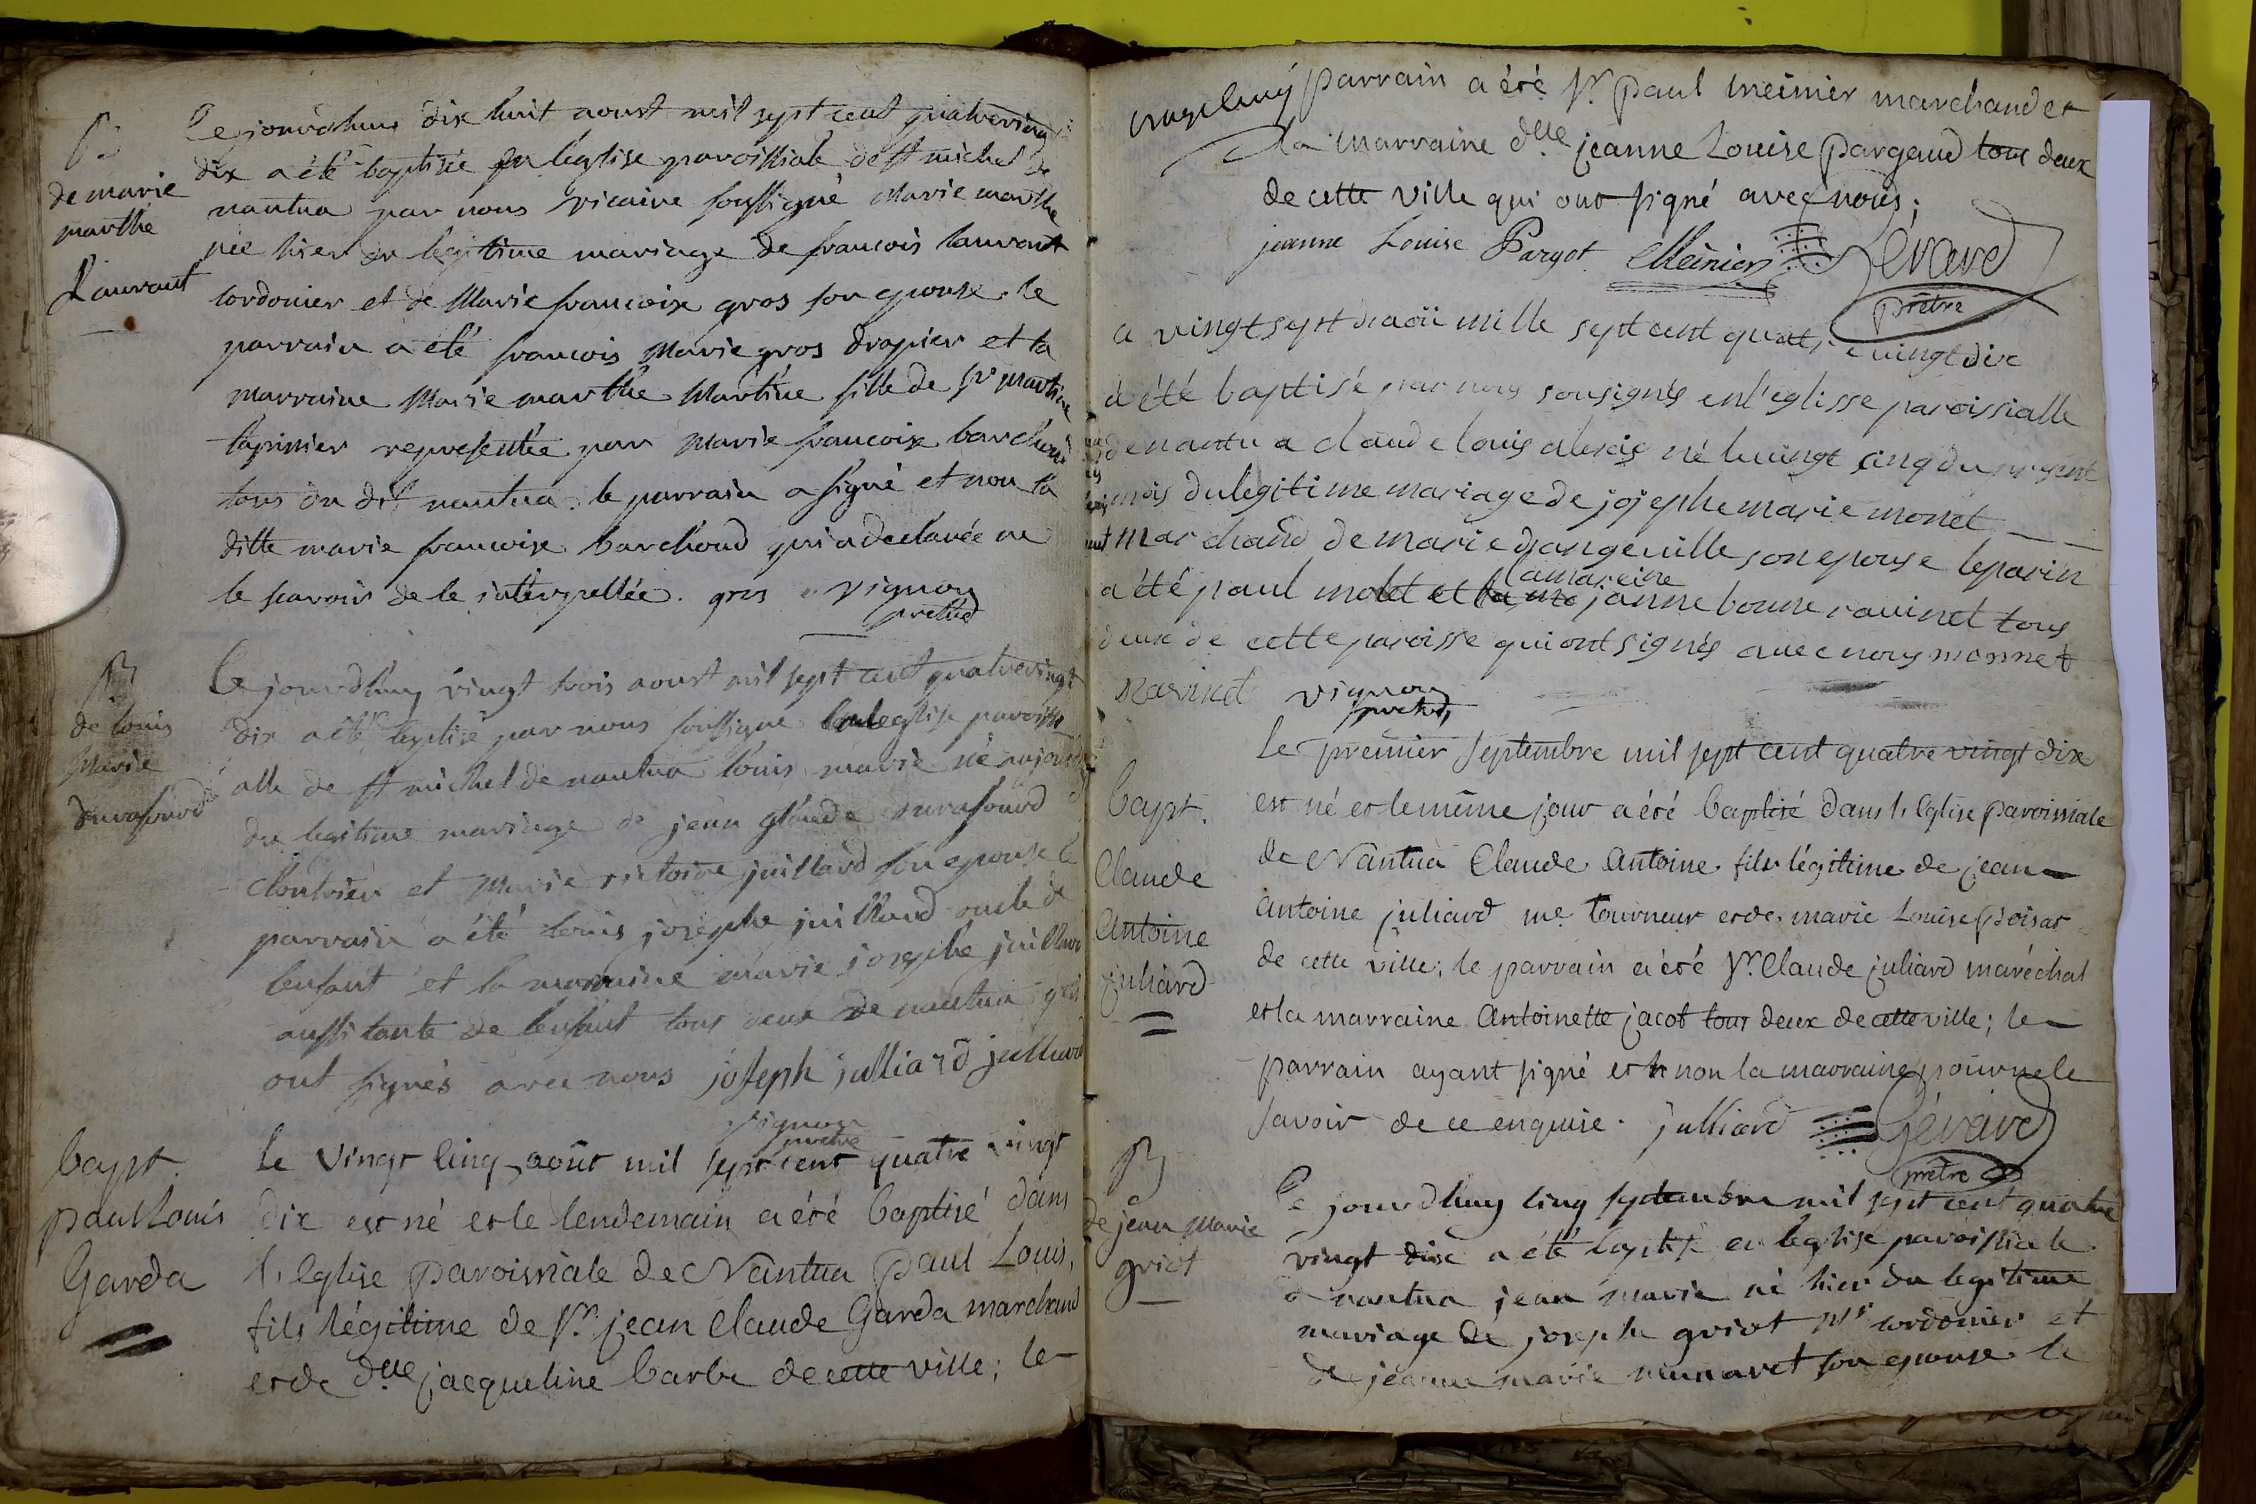 B
de marie
marthe
Lauvant
Ce jourdhui dix huit aoust mil sept cent quatrevingt
dix a été baptisée en leglise paroissiale de st michel de
nantua par nous vicaire soussigné Marie marthe
née hier du legitime mariage de francois lauvant
cordonier et de Marie francoise gros son epouse. le
parrain a été francois Marie gros drapier et la
marraine Marie marthe Martine fille de sr Martine
tapissier representée par Marie francoise barchoud
tous du dit nantua. le parrain a signé et non la
ditte marie francoise barchoud qui a declarée ne
le scavoir de le interpellée. gros vignon
prettre
B
de louis
Marie
durafourd
Ce jourdhuy vingt trois aoust mil sept cent quatrevingt
dix a été baptisé par nous soussigné en leglise paroissi
alle de st michel de nantua louis marie né aujourdhui
du legitime mariage de jean glaude durafourd
cloutrier et Marie victoire juillard son epouse le
parrain a été louis josephe juillard oncle de
lenfant et la marraine marie josephe juillard
aussi tante de lenfant tous deux de nantua qui
ont signés avec nous joseph julliard julliard
vignon
prettre
bapt.
paul Louis
Garda
le vingt cinq août mil sept cent quatre vingt
dix est né et le lendemain a été baptisé dans
l'Eglise paroissiale de Nantua paul Louis,
fils légitime de sr. jean Claude Garda marchand
et de dlle jacqueline barbe de cette ville; le
parrain a été sr. paul meinier marchand et
la marraine dlle jeanne Louise pargaud tous deux
de cette ville qui ont signé avec nous;
jeanne Louise Pargot Meinier Gérard
prêtre
a vingt sept daoü mille sept cent quatre vingt dix
a été baptisé par nous sousignés en l'eglisse paroissialle
de nantua claude louis alexis né le vingt cinq du present
mois du legitime mariage de josephe marie monet
marchand de marie dangeville son epouse le parin
a été paul molet et la mareine janne bonne ravinet tous
deux de cette paroisse qui ont signés avec nous monnet
Ravinet vignon
prettre
bapt.
Claude
Antoine
juliard
le premier septembre mil sept cent quatre vingt dix
est né et le même jour a été baptisé dans l'Eglise paroissiale
de Nantua Claude Antoine fils légitime de jean
Antoine juliard me tourneur et de marie Louise poisat
de cette ville; le parrain a été sr. Claude juliard maréchal
et la marraine Antoinette jacot tous deux de cette ville; le
parrain ayant signé et non la marraine pour ne le
savoir de ce enquise. julliard Gérard
prêtre
B
de jean Marie
griot
Ce jourdhuy cinq septembre mil sept cent quatre
vingt dix a été baptisé en leglise paroissiale
a nantua jean marie né hier du legitime
mariage de josephe griot me cordonier et
de jeanne marie munaret son epouse le